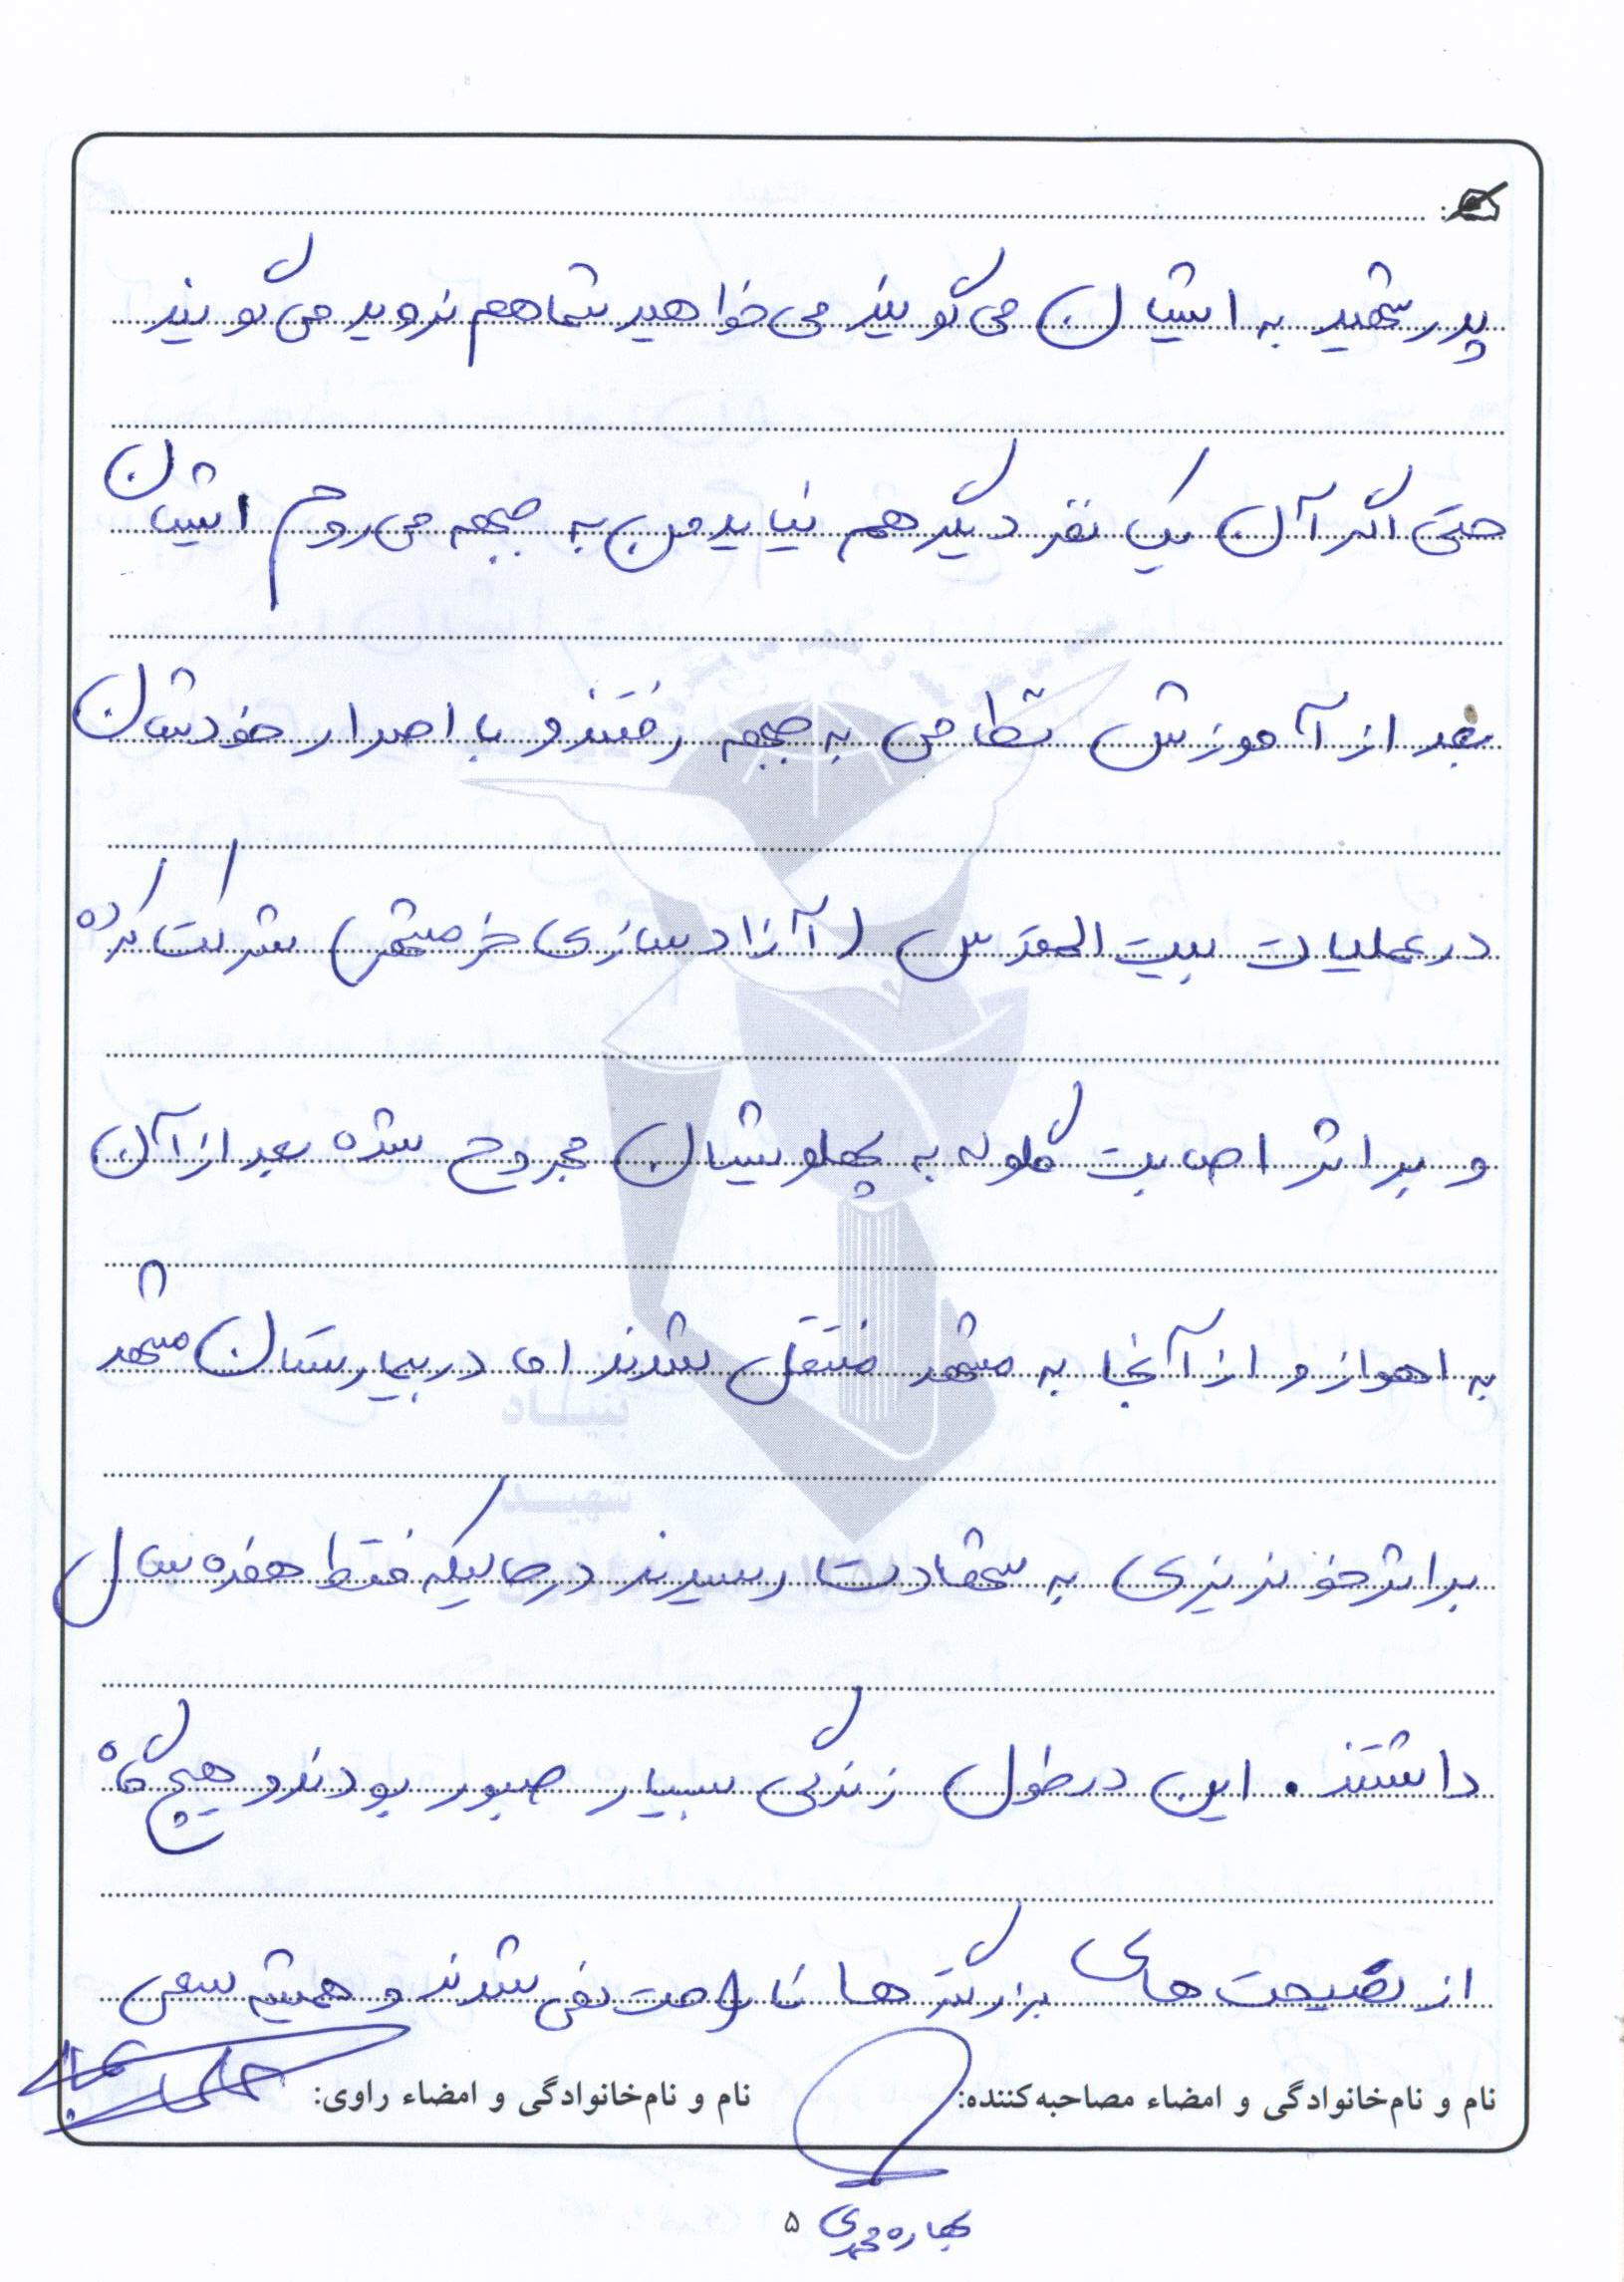 پدر شهید به ایشان می گویند می خواهید شما هم نروید می گویند
حتی اگر آن یک نفر دیگر هم نیاید من به جبهه می روم ایشان
بعد از آموزش نظامی به جبهه رفتند و با اصرار خودشان
در عملیات بیت المقدس (آزاد سازی خرمشهر) شرکت کرده
و بر اثر اصابت گلوله به پهلویشان مجروح شده بعد از آن
به اهواز و از آنجا به مشهد منتقل شدند اما در بیمارستان مشهد
بر اثر خونریزی به شهادت رسیدند در حالیکه فقط هفده سال
داشتند. این در طول زندگی بسیار صبور بودند و هیچ گاه
از نصیحت های بزرگترها ناراحت نمی شدند و همیشه سعی
نام و نام‌خانوادگی و امضاء مصاحبه‌کننده: نام و نام‌خانوادگی و امضاء راوی:
بهاره محمدی
۵
بنیاد
شهید